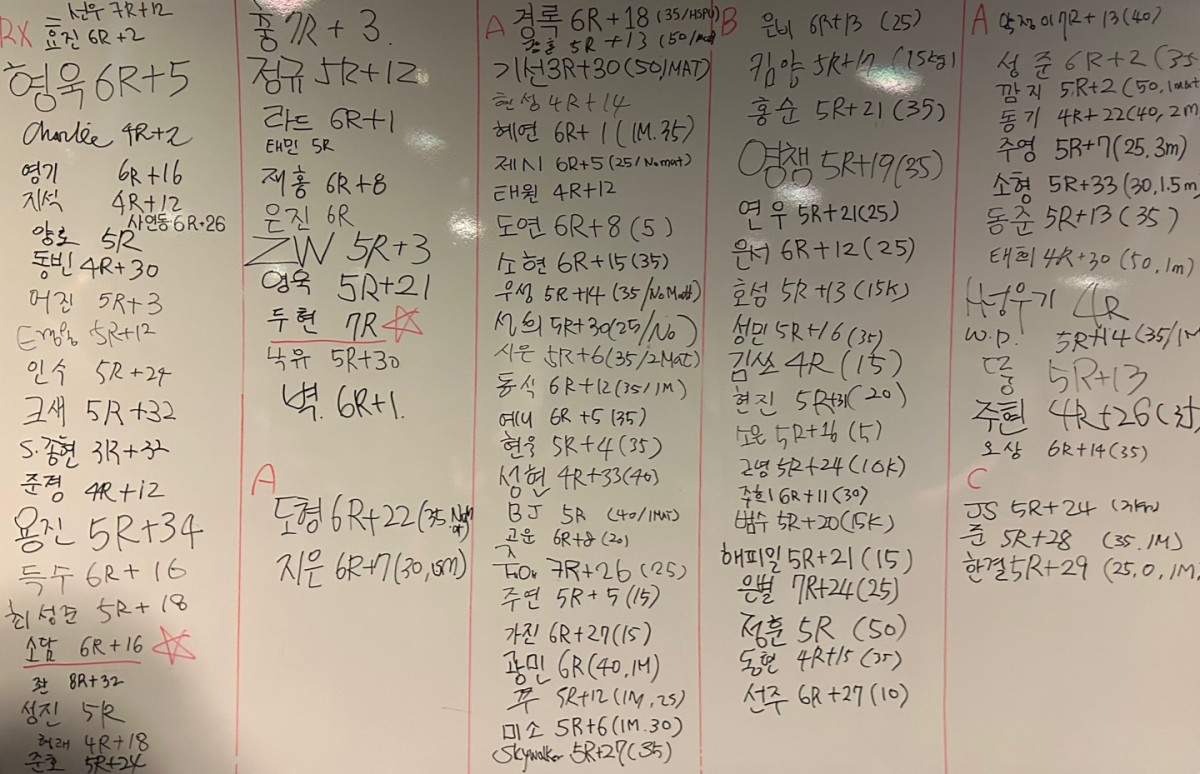 선우 7R+12
RX 효진 6R+2
형욱 6R+5
Charlie 4R+2
영기 6R+16
지석 4R+12
사인동 6R+26
양로 5R
동빈 4R+30
어진 5R+3
5R+12
인수 5R+24
크새 5R+32
S.종현 3R+32
준경 4R+12
용진 5R+34
득수 6R+16
최성준 5R+18
소담 6R+16
좌 8R+32
성진 5R
4R+18
준호 5R+24
중 7R+3.
정규 5R+12
라드 6R+1
태민 5R
재홍 6R+8
은진 6R
ZW 5R+3
영욱 5R+21
두현 7R
낙유 5R+30
벽. 6R+1.
A
도형 6R+22(35 No Mat)
지은 6R+7(30, 1.5m)
A 경록 6R+18(35/HSPU)
5R+13(50/mat)
기선 3R+30(50/MAT)
현성 4R+14
혜연 6R+1(1M.35)
제시 6R+5(25/No mat)
태원 4R+12
도연 6R+8(5)
소현 6R+15(35)
우성 5R+14(35/No Matt)
5R+30(25/No)
시은 5R+6(35/2MAT)
동식 6R+12(35/1M)
예니 6R+5(35)
현욱 5R+4(35)
성현 4R+33(40)
BJ 5R (40/1MAT)
고운 6R+8(20)
7R+26(25)
주연 5R+5(15)
가진 6R+27(15)
광민 6R(40,1M)
쭈 5R+12(1M,25)
미소 5R+6(1M.30)
Skywalker 5R+27(35)
B 은비 6R+13 (25)
킴양 5R+17 (15kg)
홍순 5R+21(35)
영잼 5R+19(35)
연우 5R+21(25)
은서 6R+12(25)
호섬 5R+13(15K)
성민 5R+16(35)
김쏘 4R(15)
현진 5R+31(20)
소운 5R+16(5)
고녕 5R+24(10K)
주희 6R+11(30)
범수 5R+20(15K)
해피일 5R+21(15)
은별 7R+24(25)
정훈 5R(50)
동현 4R+15(35)
선주 6R+27(10)
A 7R+13(40)
성준 6R+2(35
깜지 5R+2(50,1mat
동기 4R+22(40,2m)
주영 5R+7(25.3m)
소형 5R+33(30,1.5m)
동준 5R+13(35)
태희 4R+30(50,1m)
4R
W.P. 5R+14(35/1M
5R+13
주현 4R+26(35)
오상 6R+14(35)
C
JS 5R+24
준 5R+28 (35.1M)
한결 5R+29 (25,0,1M)